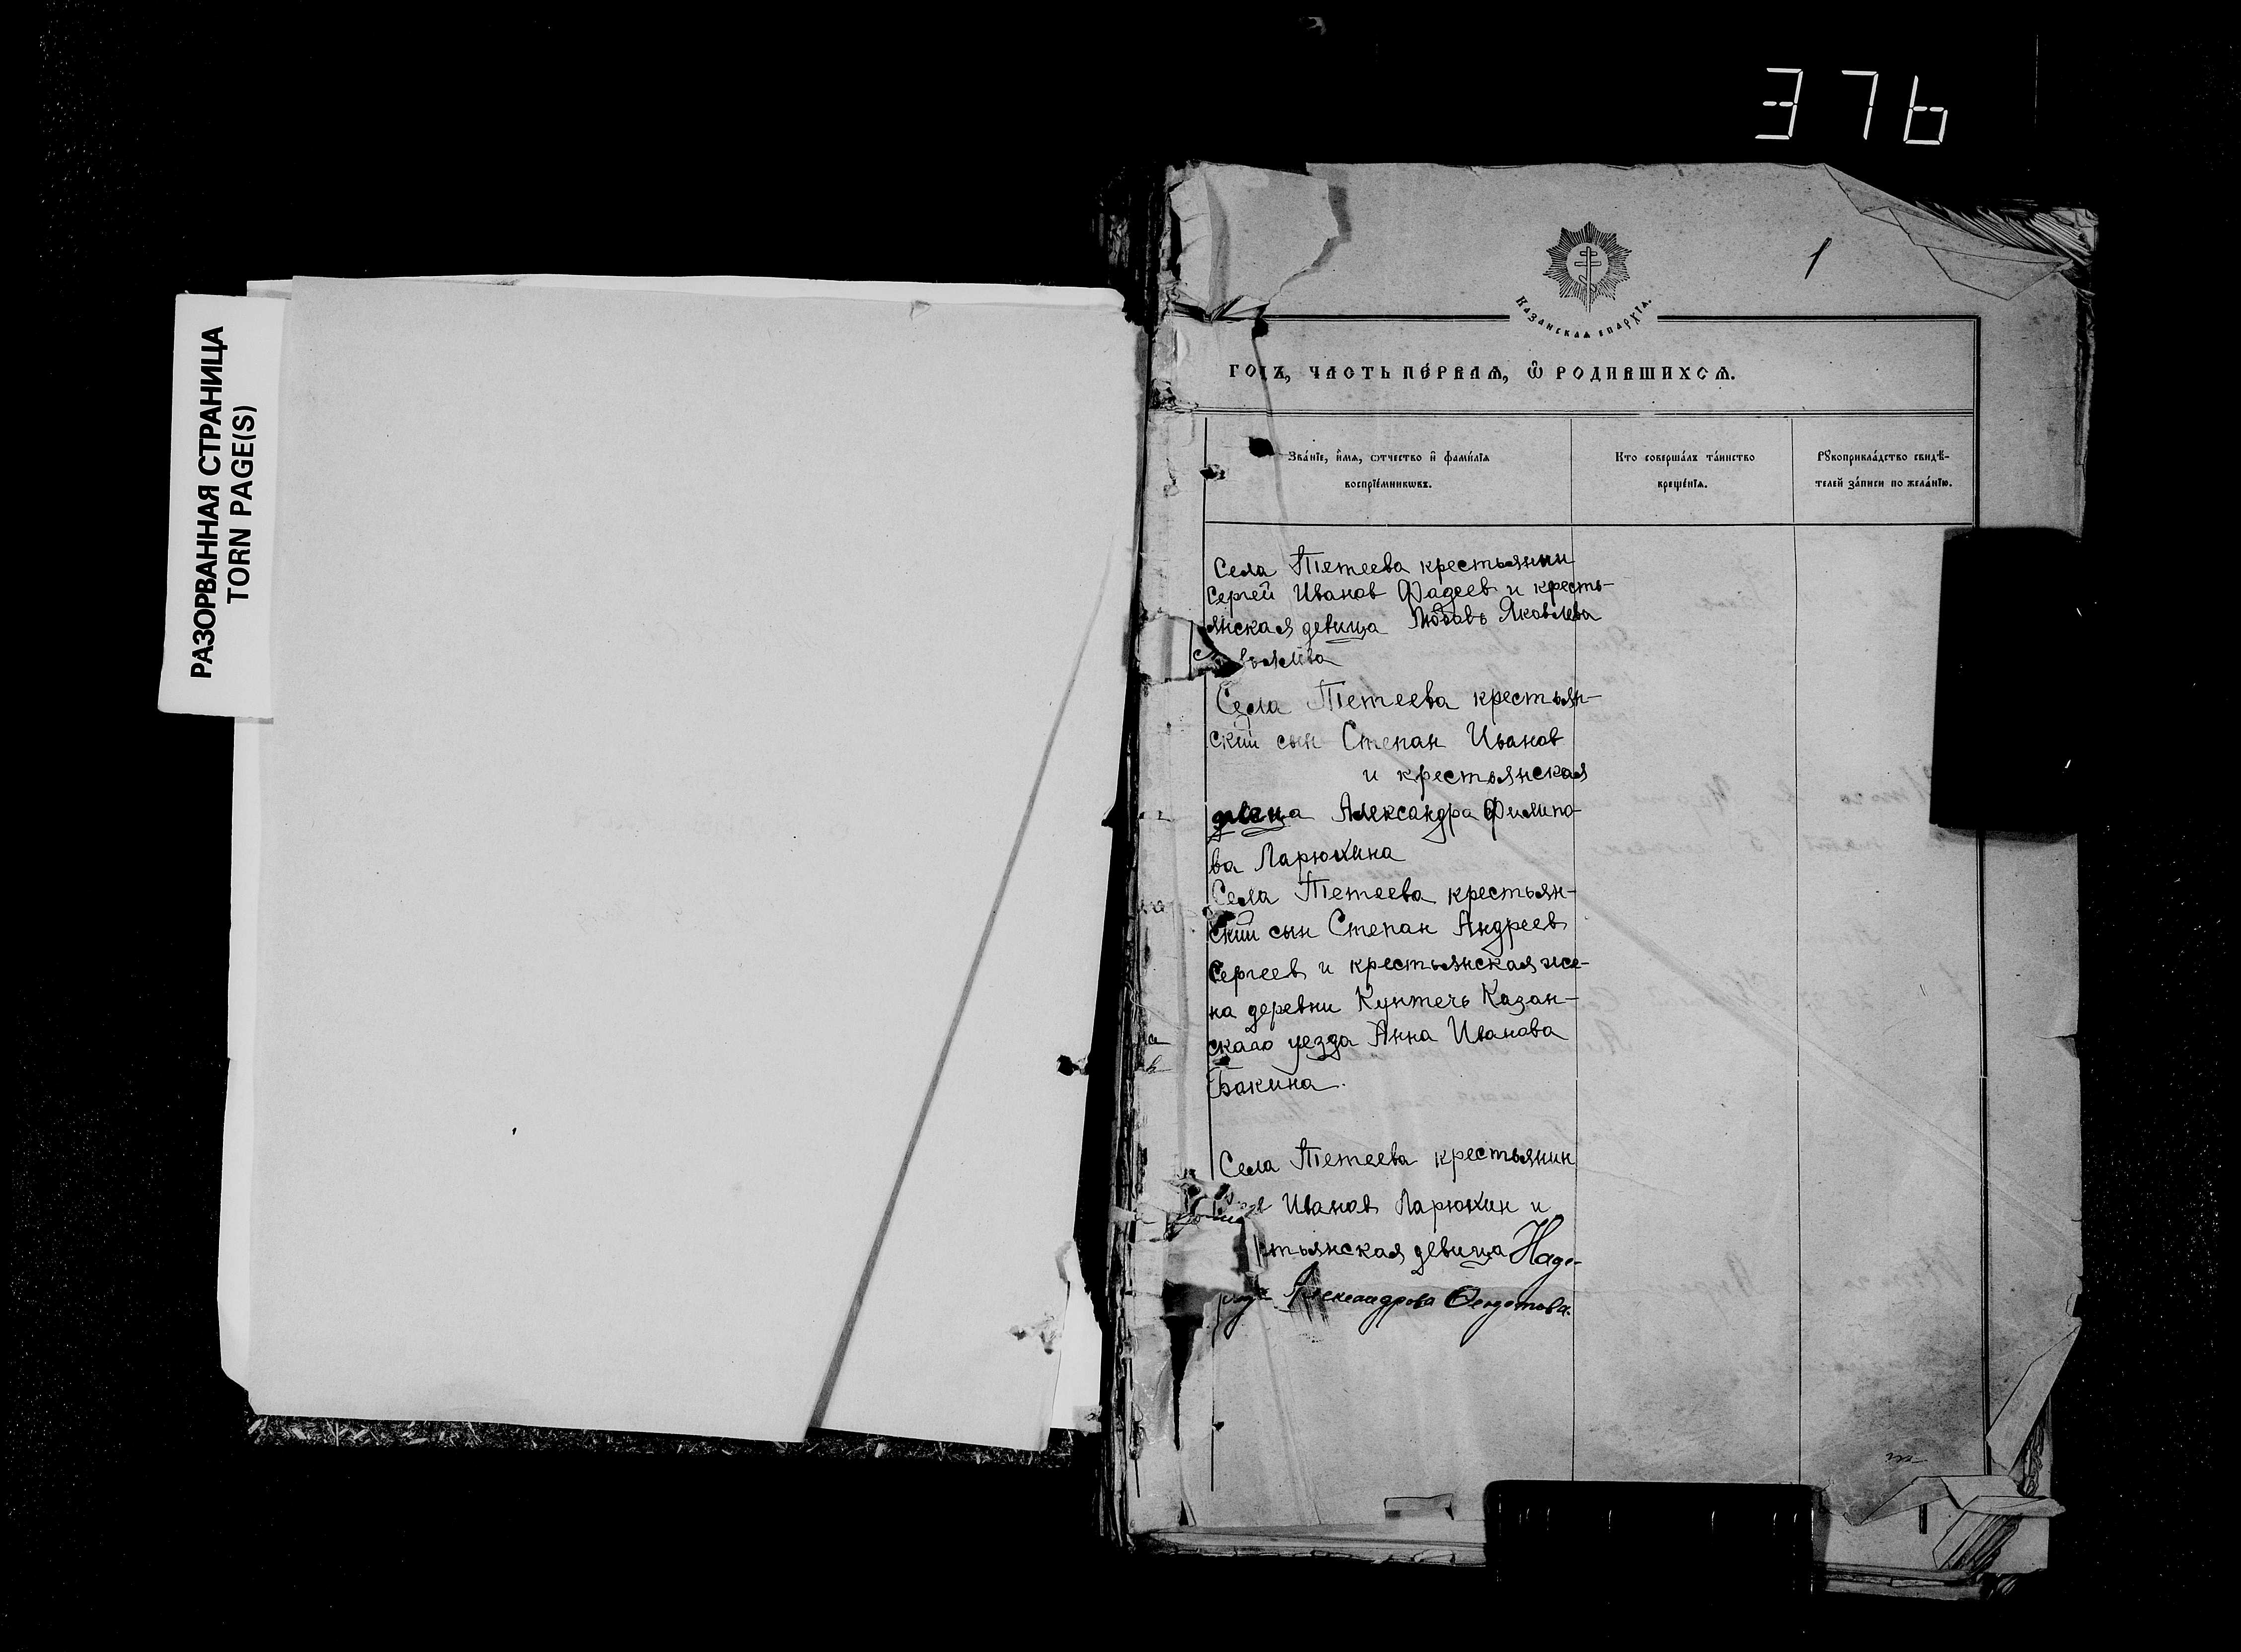 376
РАЗОРВАННАЯ СТРАНИЦА
TORN PAGE(S)
1
Казанская епархїа.
ГОДЪ, ЧАСТЬ ПЕ́РВАѦ, Ѽ РОДИВШИХСѦ.
Зва́нїе, и҆́мѧ, ѻтчество и҆ фами́лїѧ
воспрїе́мникѡвъ.
Кто соверша́лъ та́инство
креще́нїѧ.
Рꙋкоприкла́дство свидѣ́-
телей за́писи по жела́нїю.
Села Тетеева крестьянин
Сергей Иванов Фадеев и кресть-
янская девица Любовь Яковлева
Села Тетеева крестьян-
ский сын Степан Иванов
и крестьянская
девица Александра Филипо-
ва Ларюхина
Села Тетеева крестьян-
ский сын Степан Андреев
Сергеев и крестьянская же-
на деревни Куктечь Казан-
скаго уезда Анна Иванова
Бакина.
Села Тетеева крестьянин
Иванов Ларюхин и
тьянская девица Наде-
Александрова Федотова.